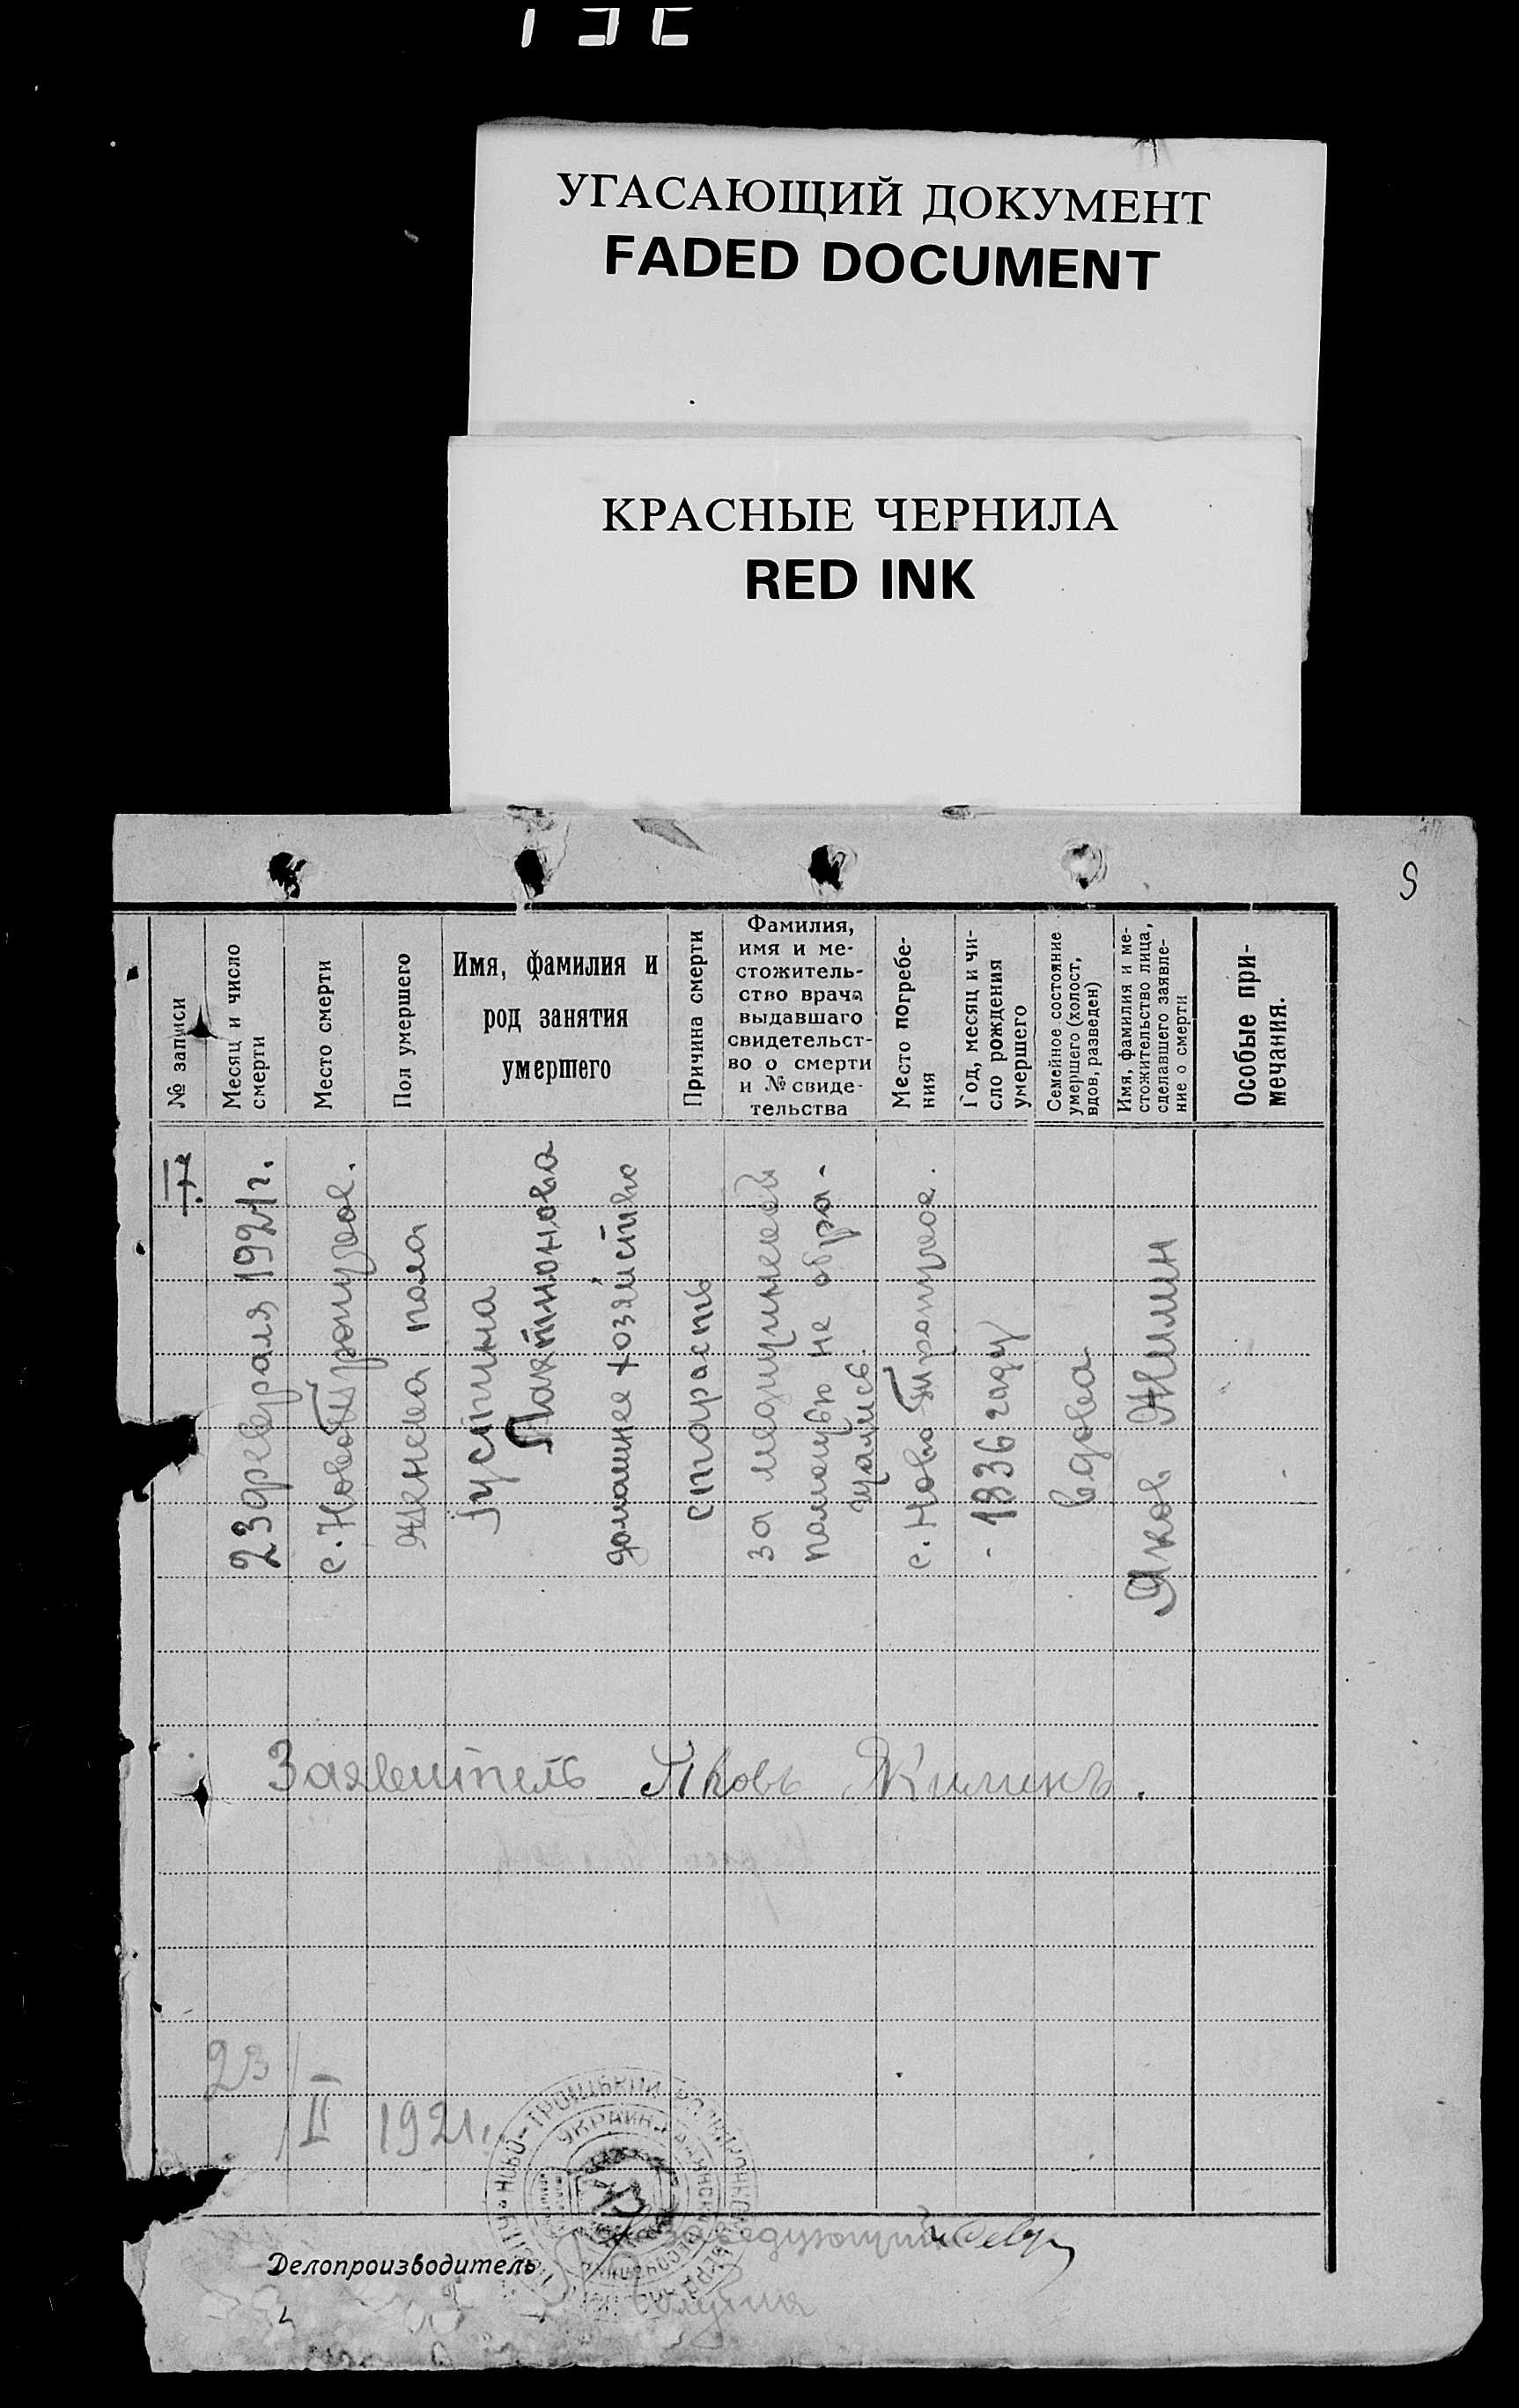 УГАСАЮЩИЙ ДОКУМЕНТ
FADED DOCUMENT
КРАСНЫЕ ЧЕРНИЛА
RED INK
9
№ записи
Месяц и число
смерти
Место смерти
Пол умершего
Имя, фамилия и
род занятия
умершего
Причина смерти
Фамилия,
имя и ме-
стожитель-
ство врача
выдавшаго
свидетельст-
во о смерти
и № свиде-
тельства
Место погребе-
ния
Год, месяц и чи-
сло рождения
умершего
Семейное состояние
умершего (холост,
вдов, разведен)
Имя, фамилия и ме-
стожительство лица,
сделавшего заявле-
ние о смерти
Особые при-
мечания.
17.
23 февраля 1921 г.
с. Ново Троицкое.
женска пола
Густина
Лактионова
домашнее хозяйство
старасть
за медицинской
помощью не обра-
щались
с. Ново Троицкое.
- 1836 году
вдова
Яков Жилин
Заявитель Яковъ Жилинъ.
23/II 1921 г.
НОВО-ТРОИЦЬКИЙ
УКРАИН.
заведующий
Делопроизводитель